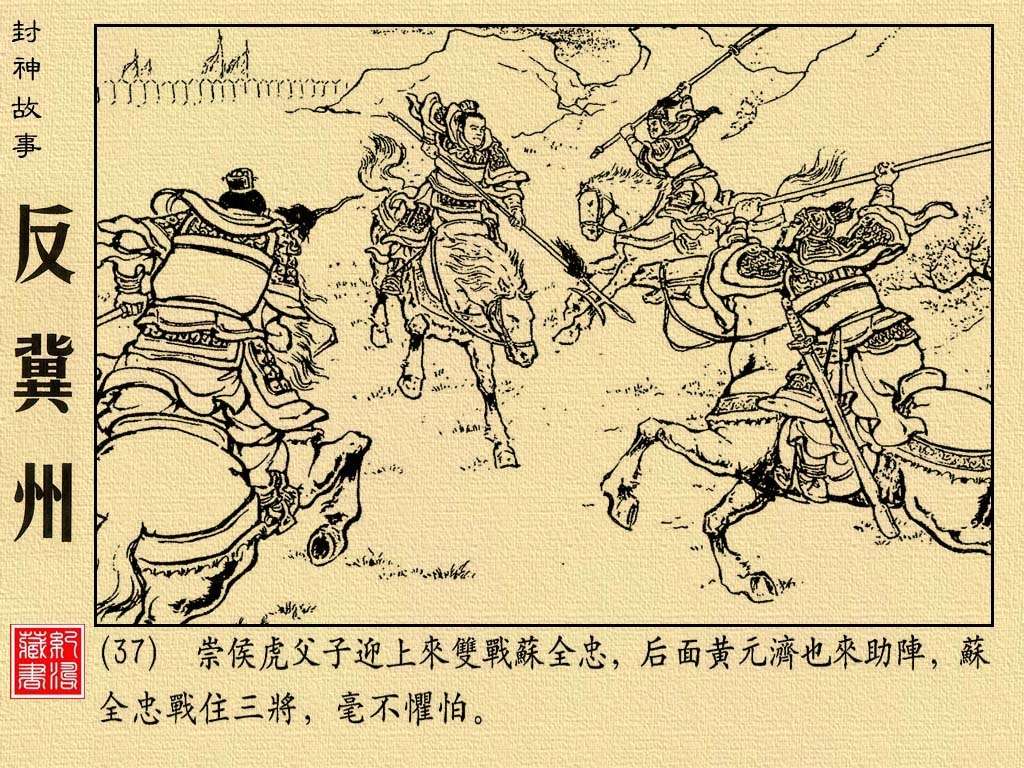 封神故事
反冀州
(37) 崇侯虎父子迎上來雙戰蘇全忠，后面黄元濟也來助陣，蘇
全忠戰住三將，毫不懼怕。